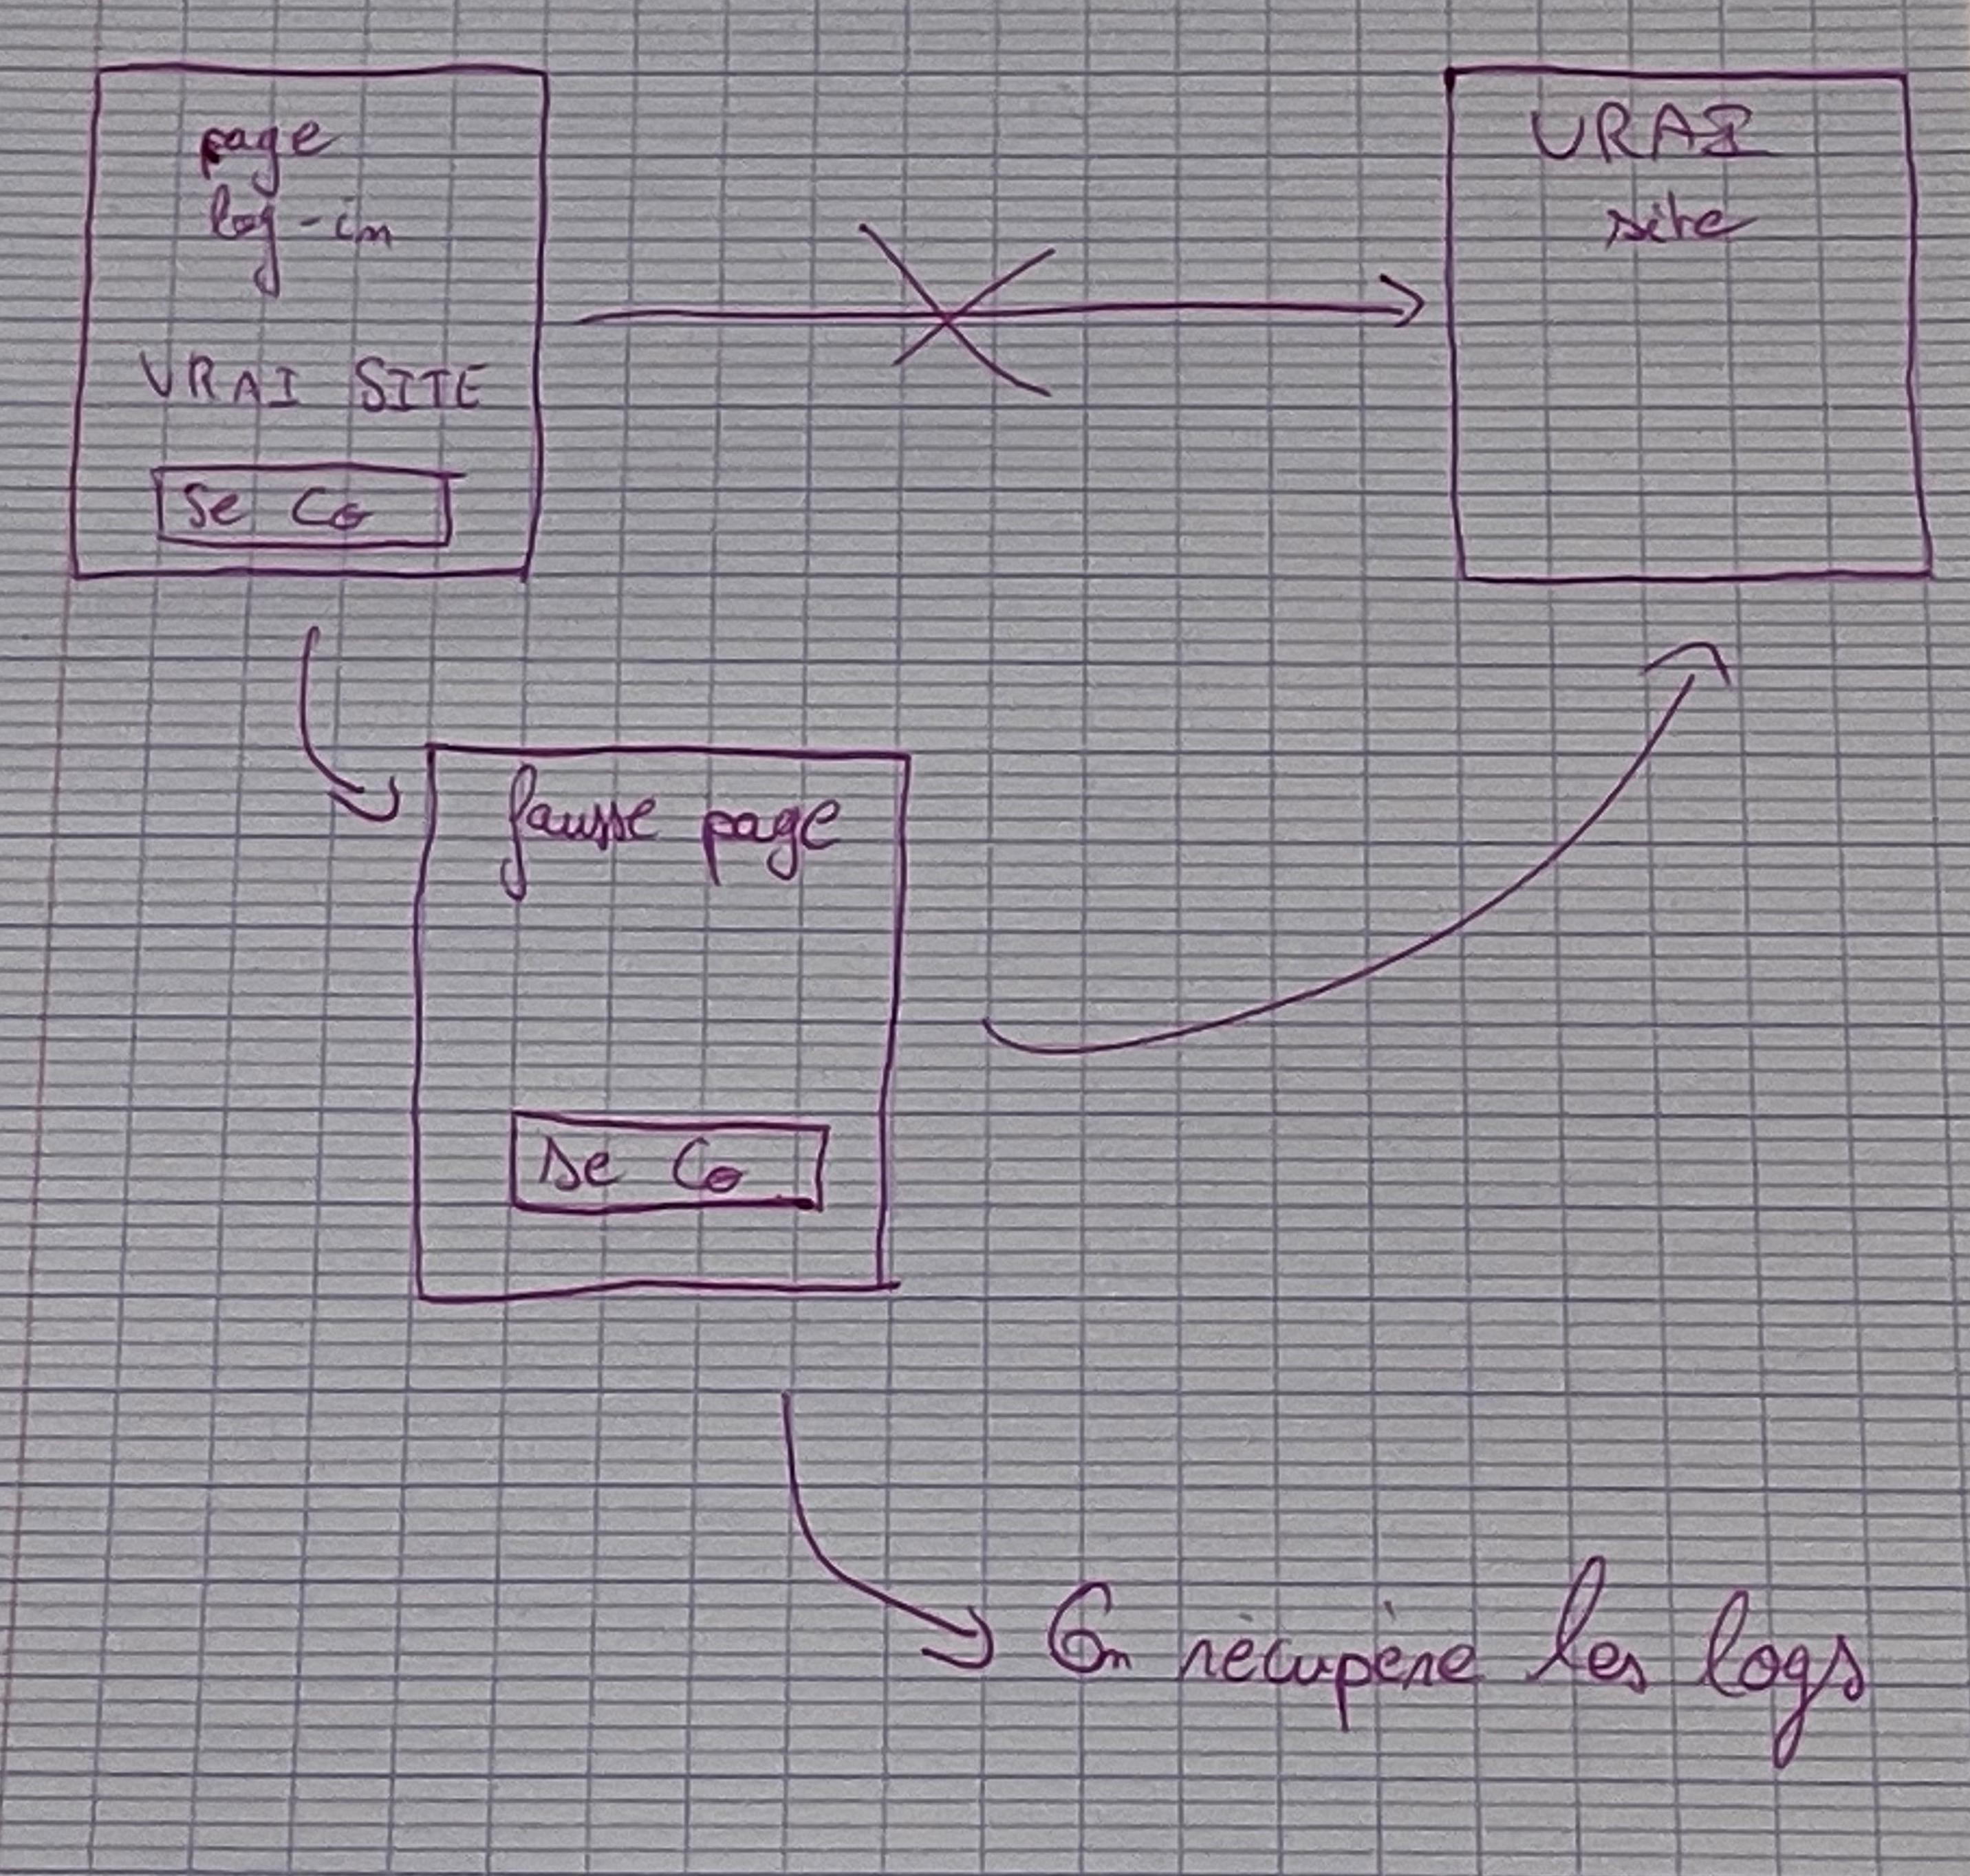 page
log-in
VRAI SITE
Se Co
VRAI
site
fausse page
Se Co
On récupère les logs